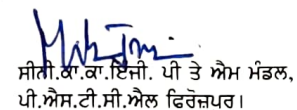 ਸੀਨੀ.ਕਾ.ਕਾ.ਇੰਜੀ. ਪੀ ਤੇ ਐਮ ਮੰਡਲ,
ਪੀ.ਐਸ.ਟੀ.ਸੀ.ਐਲ ਫਿਰੋਜ਼ਪੁਰ।